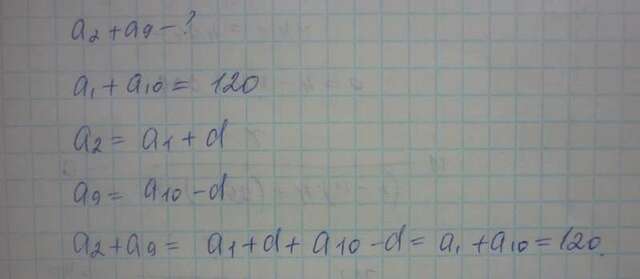 a₂ + a₉ - ?
a₁ + a₁₀ = 120
a₂ = a₁ + d
a₉ = a₁₀ - d
a₂ + a₉ = a₁ + d + a₁₀ - d = a₁ + a₁₀ = 120.